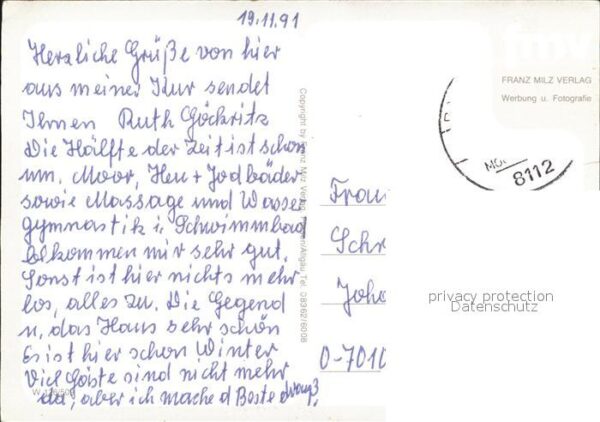 19.11.91
Herzliche Grüße von hier
aus meiner Kur sendet
Ihnen Ruth Göckritz
Die Hälfte der Zeit ist schon
um. Moor, Heu + Jodbäder
sowie Massage und Wasser
gymnastik i. Schwimmbad
bekommen mir sehr gut.
Sonst ist hier nichts mehr
los, alles zu. Die Gegend
u. das Haus sehr schön
Es ist hier schon Winter
Viel Gäste sind nicht mehr
da, aber ich mache d Beste draus
Copyright by Franz Milz Verlag
Allgäu Tel. 08362/6008
FRANZ MILZ VERLAG
Werbung u. Fotografie
8112
Frau
Schr
Joha
O-7010
privacy protection
Datenschutz